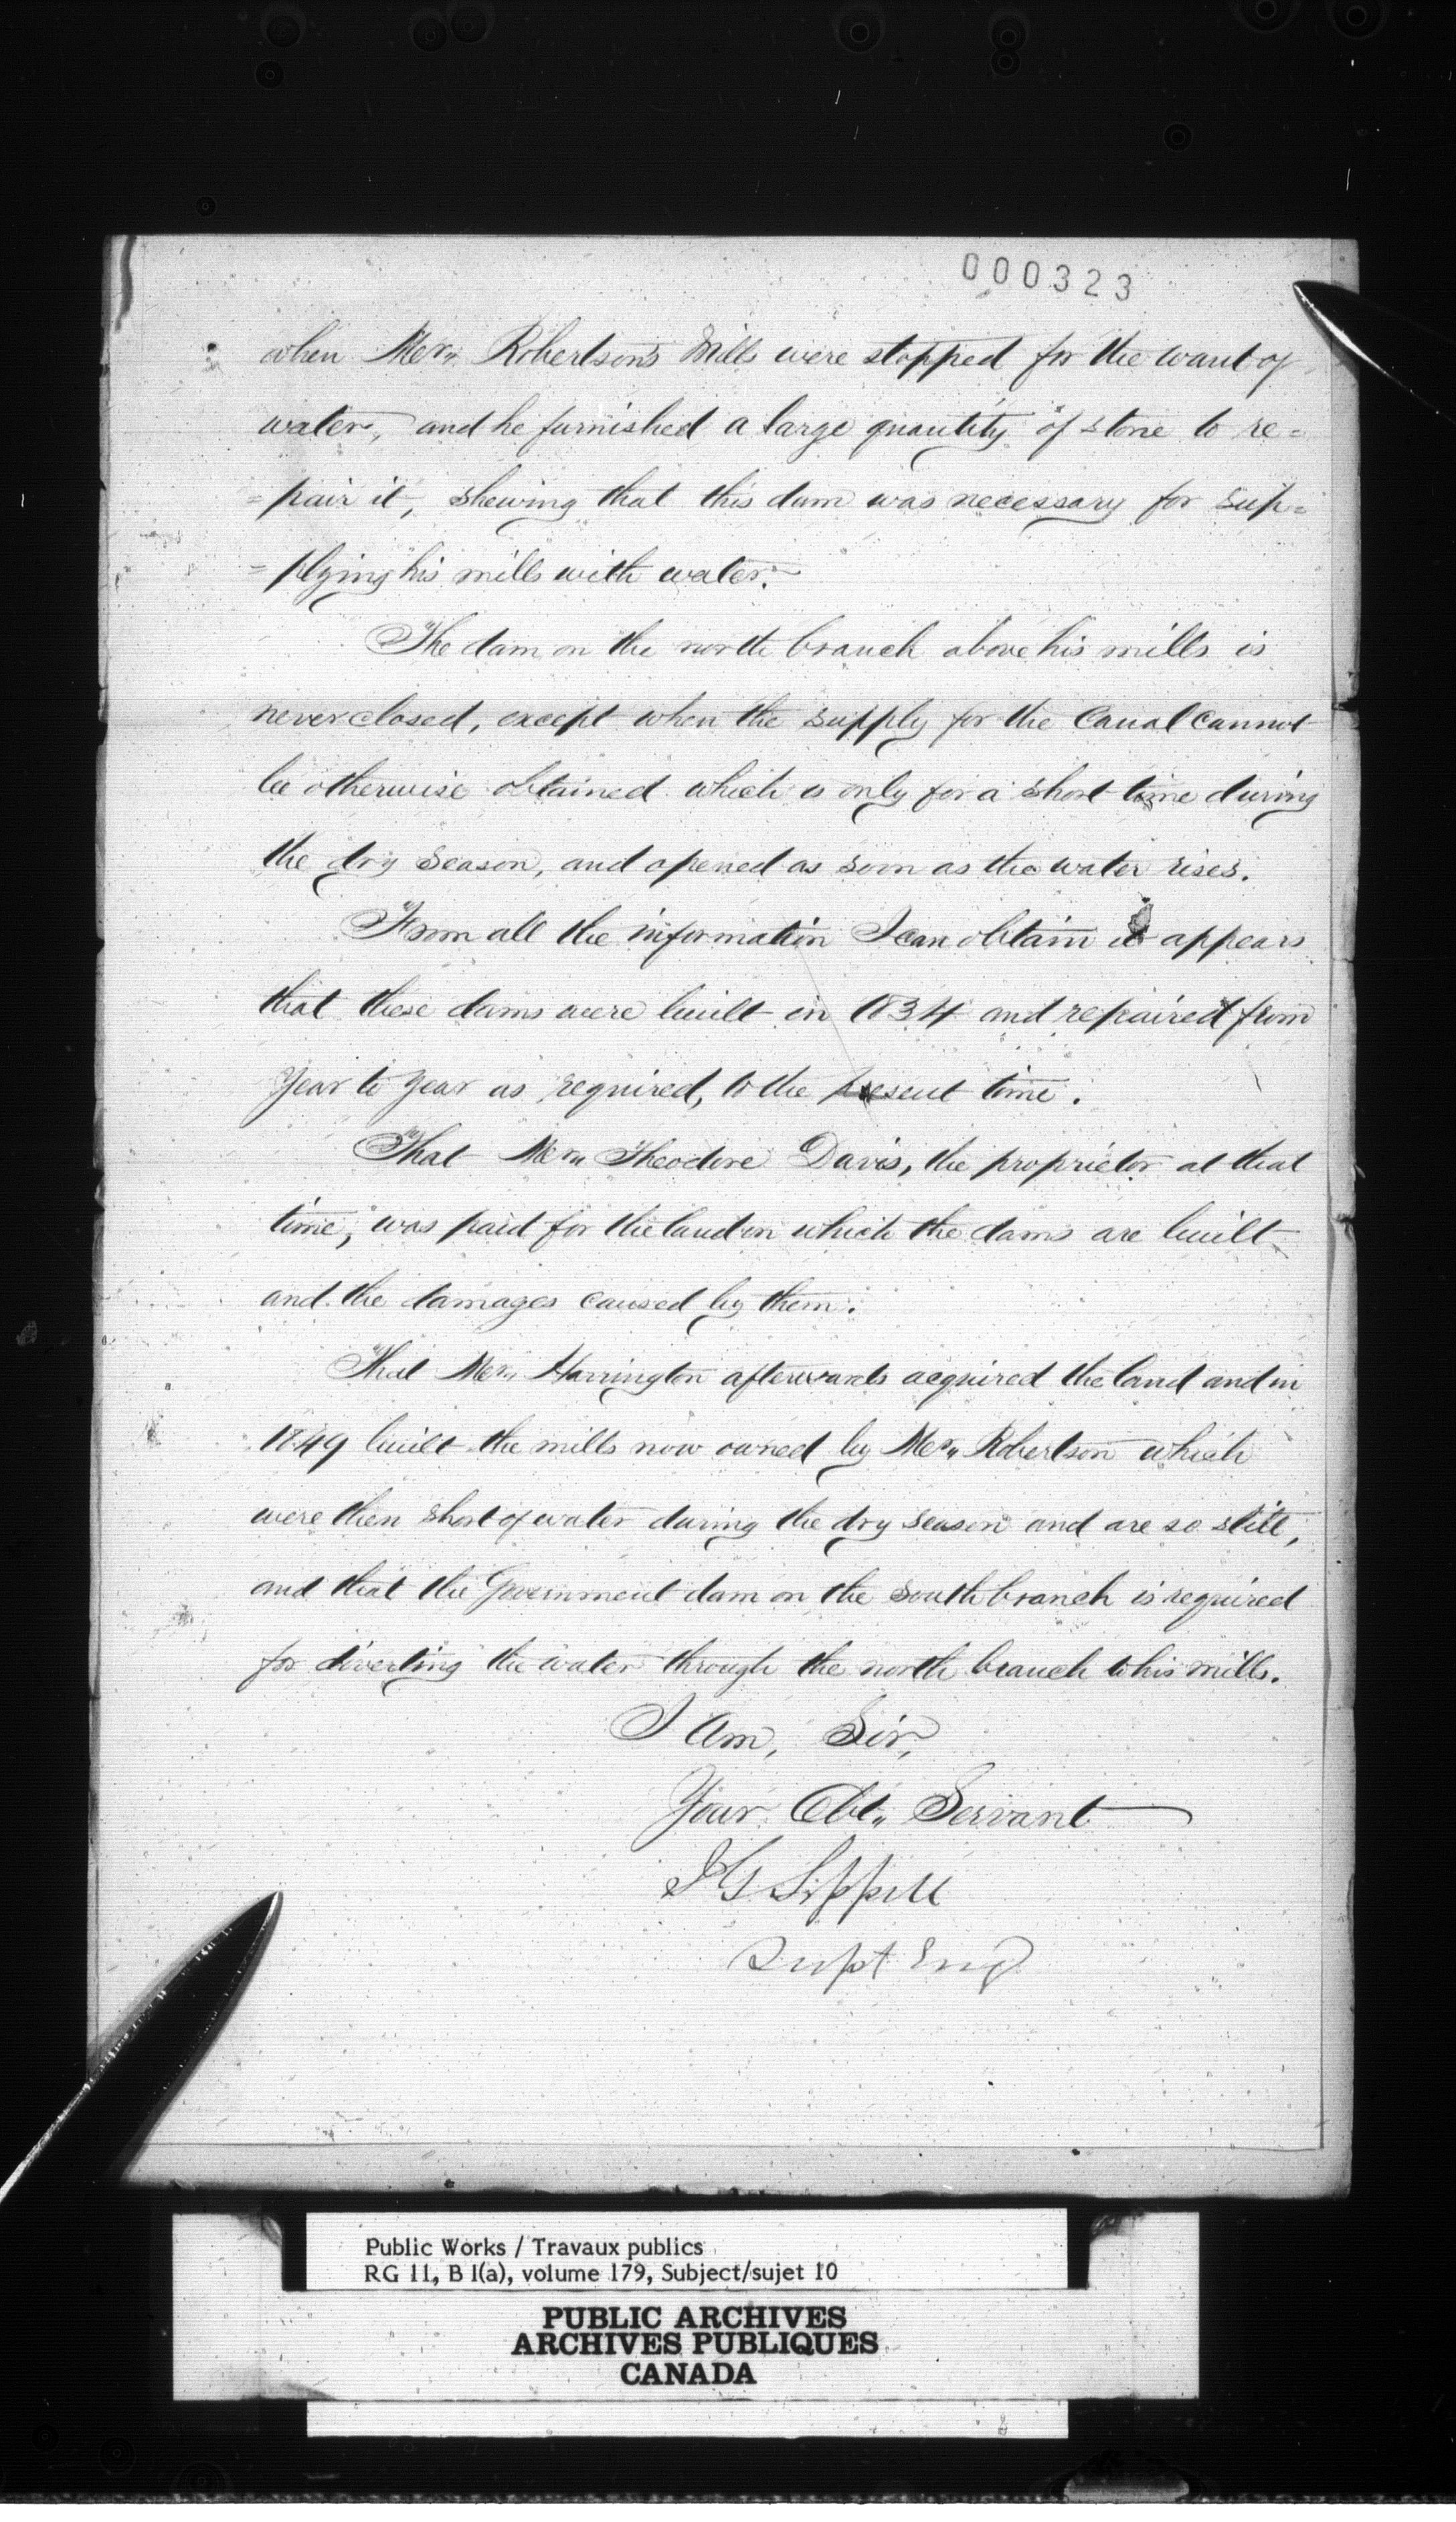 000323
when Mr„ Robertson's Mills were stopped for the want of
water, and he furnished a large quantity of stone to re=
=pair it, shewing that this dam was necessary for sup=
=plying his mills with water.
The dam on the north branch above his mills is
never closed, except when the supply for the Canal cannot
be otherwise obtained which is only for a short time during
the dry Season, and opened as soon as the water rises.
From all the information I can obtain it appears
that these dams were built in 1834 and repaired from
Year to Year as required, to the present time.
That Mr„ Theodore Davis, the proprietor at that
time, was paid for the land on which the dams are built
and the damages caused by them.
That Mr„ Harrington afterwards acquired the land and in
1849 built the mills now owned by Mr„ Robertson which
were then short of water during the dry season and are so still,
and that the Government dam on the South branch is required
for diverting the water through the north branch to his mills.
I Am, Sir,
Your Obt„ Servant
J G Sippell
Supt Eng
Public Works / Travaux publics
RG 11, B 1(a), volume 179, Subject/sujet 10
PUBLIC ARCHIVES
ARCHIVES PUBLIQUES
CANADA